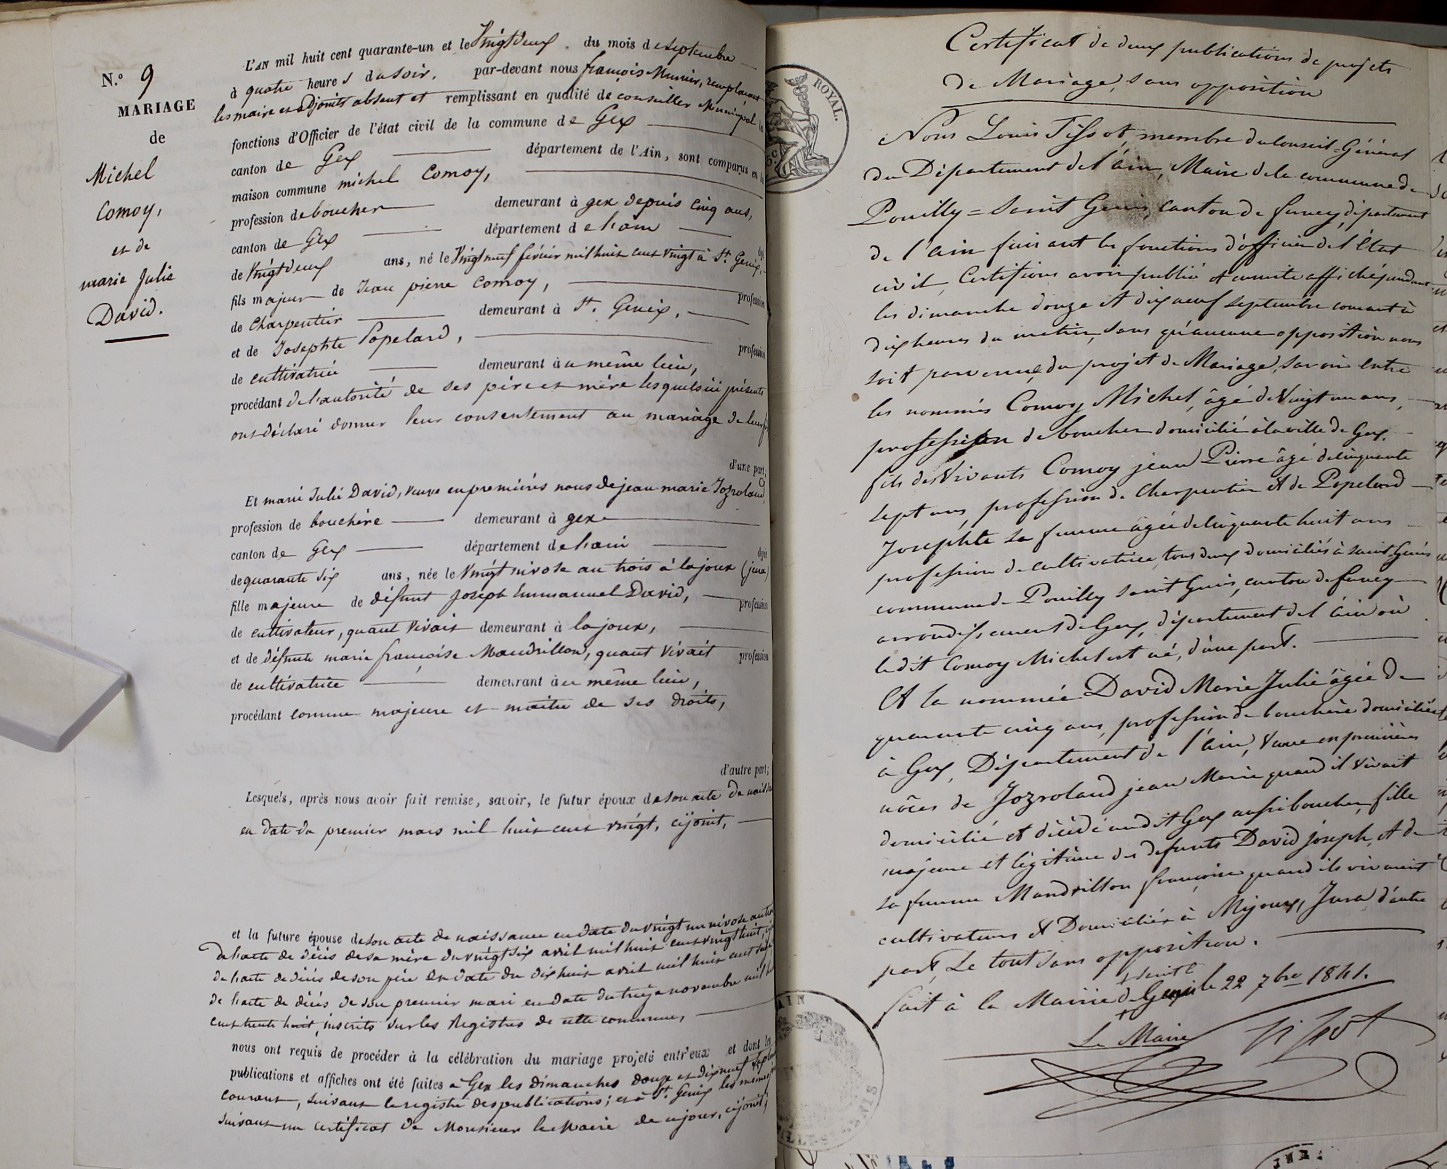 N.º 9
MARIAGE
de
Michel
Comoy,
et de
marie Julie
David.
L'AN mil huit cent quarante-un et le Vingt deux du mois de septembre
à quatre heures du soir, par-devant nous françois Munier, remplaçant
les maire et adjoints absent et remplissant en qualité de conseiller Municipal les
fonctions d'Officier de l'état civil de la commune de Gex
canton de Gex département de l'Ain, sont comparus en la
maison commune michel Comoy,
profession de boucher demeurant à gex depuis cinq ans,
canton de Gex département de l'ain
de Vingt deux ans, né le Vingt neuf février mil huit cent vingt à St. Genix,
fils majeur de Jean pierre Comoy, profession
de Charpentier demeurant à St. Genix,
et de Josephte Popelard, profession
de cultivatrice demeurant au même lieu,
procédant de l'autorité de ses père et mère lesquels ici présents
ont déclaré donner leur consentement au mariage de leur fils
d'une part,
Et marie Julie David, veuve en premières noces de jean marie Jozroland
profession de bouchère demeurant à gex
canton de Gex département de l'ain
de quarante six ans, née le Vingt nivose an trois à lajoux (jura)
fille majeure de défunt Joseph Emmanuel David, profession
de cultivateur, quant vivait demeurant à lajoux,
et de défunte marie françoise Mandrillon, quant vivait profession
de cultivatrice demeurant au même lieu,
procédant comme majeure et maitre de ses droits,
d'autre part;
Lesquels, après nous avoir fait remise, savoir, le futur époux de son acte de naissance
en date du premier mars mil huit cent vingt, cijoint,
et la future épouse de son acte de naissance en date du vingt un nivose an trois
de l'acte de décès de sa mère du vingt six avril mil huit cent vingt huit,
de l'acte de décès de son père en date du dix huit avril mil huit cent
de l'acte de décès de son premier mari en date du treize novembre mil huit
cent trente huit, inscrits sur les Registres de cette commune,
nous ont requis de procéder à la célébration du mariage projeté entr'eux et dont les
publications et affiches ont été faites à Gex les dimanches douze et dix neuf septembre
courant, suivant le registre des publications; et à St. Genix les mêmes jours
suivant un certificat de Monsieur le Maire de ce jour, cijoint;
ROYAL.
Certificat de deux publications de projets
de Mariage, sans opposition
Nous Louis Tissot, membre du Conseil-Général
du Département de l'ain, Maire de la commune de
Pouilly = Saint Genis, canton de ferney, département
de l'ain faisant les fonctions d'officier de l'Etat
civil, Certifions avoir publié et ensuite affiché pendant
les dimanche douze et dix neuf septembre courant à
dix heures du matin, sans qu'aucune opposition nous
soit parvenue, du projet de Mariage, savoir entre
les nommés Comoy Michel, âgé de Vingt un ans,
profession de boucher domicilié à la ville de Gex,
fils des Vivants Comoy jean Pierre âgé de cinquante
sept ans profession de Charpentier et de Popelard
Josephte sa femme âgée de cinquante huit ans
profession de cultivatrice, tous deux domiciliés à saint Genis
commune de Pouilly saint Genis, canton de ferney
arrondissement de Gex, département de l'ain où
ledit Comoy Michel est né, d'une part.
Et la nommée David Marie Julie âgée de
quarante cinq ans, profession de bouchère domiciliée
à Gex, Département de l'ain, veuve en premières
nôces de Jozroland jean Marie quand il vivait
domicilié et décédé audit Gex aussi boucher, fille
majeure et légitime des défunts David joseph, et de
sa femme Mandrillon françoise quand ils vivaient
cultivateurs et Domiciliés à Mijoux, Jura d'autre
part. Le tout sans opposition.
fait à la Mairie de saint Genis le 22 7bre 1841.
Le Maire Tissot
AIN